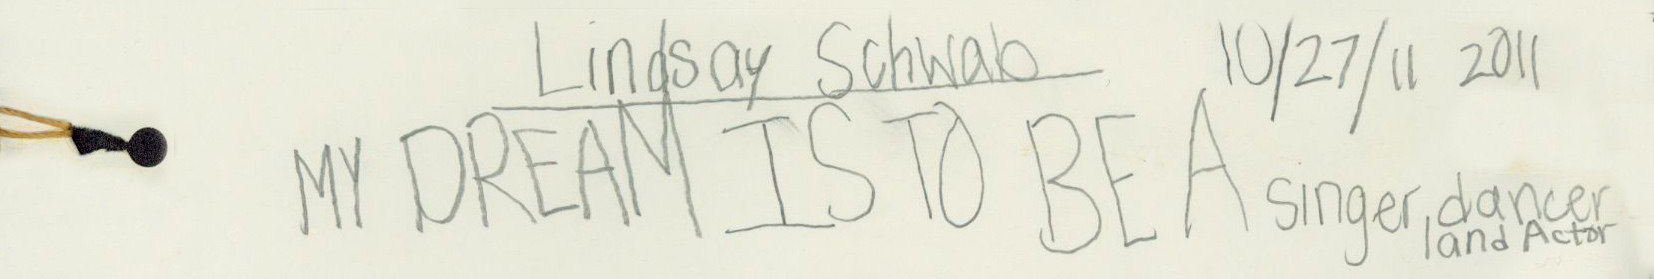 Lindsay Schwab 10/27/11 2011
MY DREAM IS TO BE A singer, dancer
and Actor